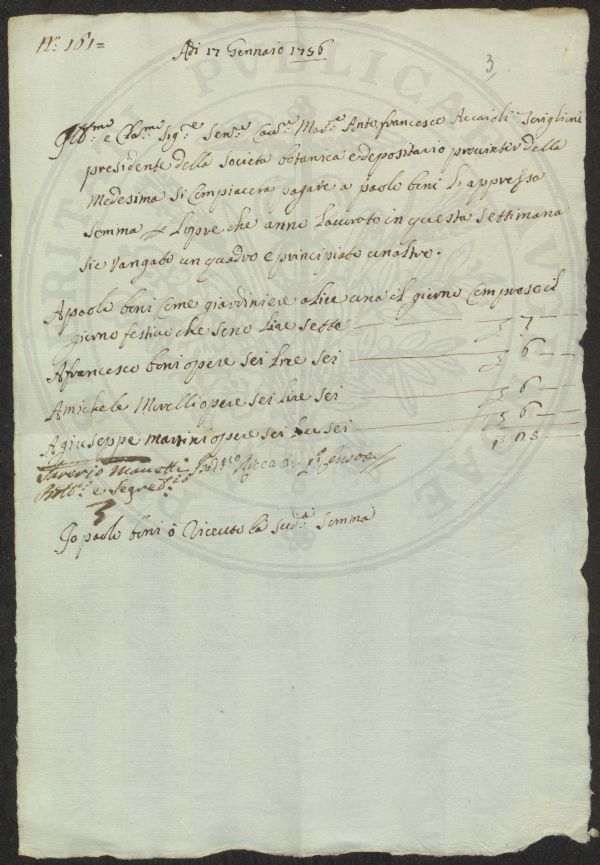 Nº. 161=
Adi 17 Gennaio 1756
3
Ill.mo e Cla.mo Sig.re Sen.re Cav.re Anto. francesco Acciaioli
presidente della Societa botanica e depositario della
Medesima Si Compiacera pagare a paolo beni L appressa
Somma opre che anno lavorato in questa Settimana
Sie Vangato un quadro e principiato unaltro.
A paolo beni Come giardiniere a Lire una il giorno Compreso il
giorno festivo che sono Lire Sette 7
A francesco beni opere Sei Lire Sei 6
A michele Morelli opere Sei Lire Sei 6
A giuseppe Martini opere Sei Lire Sei 6
Saverio Manetti
Segret.rio
Io paolo beni ò Riceuto la sud.a Somma
PVBLICA